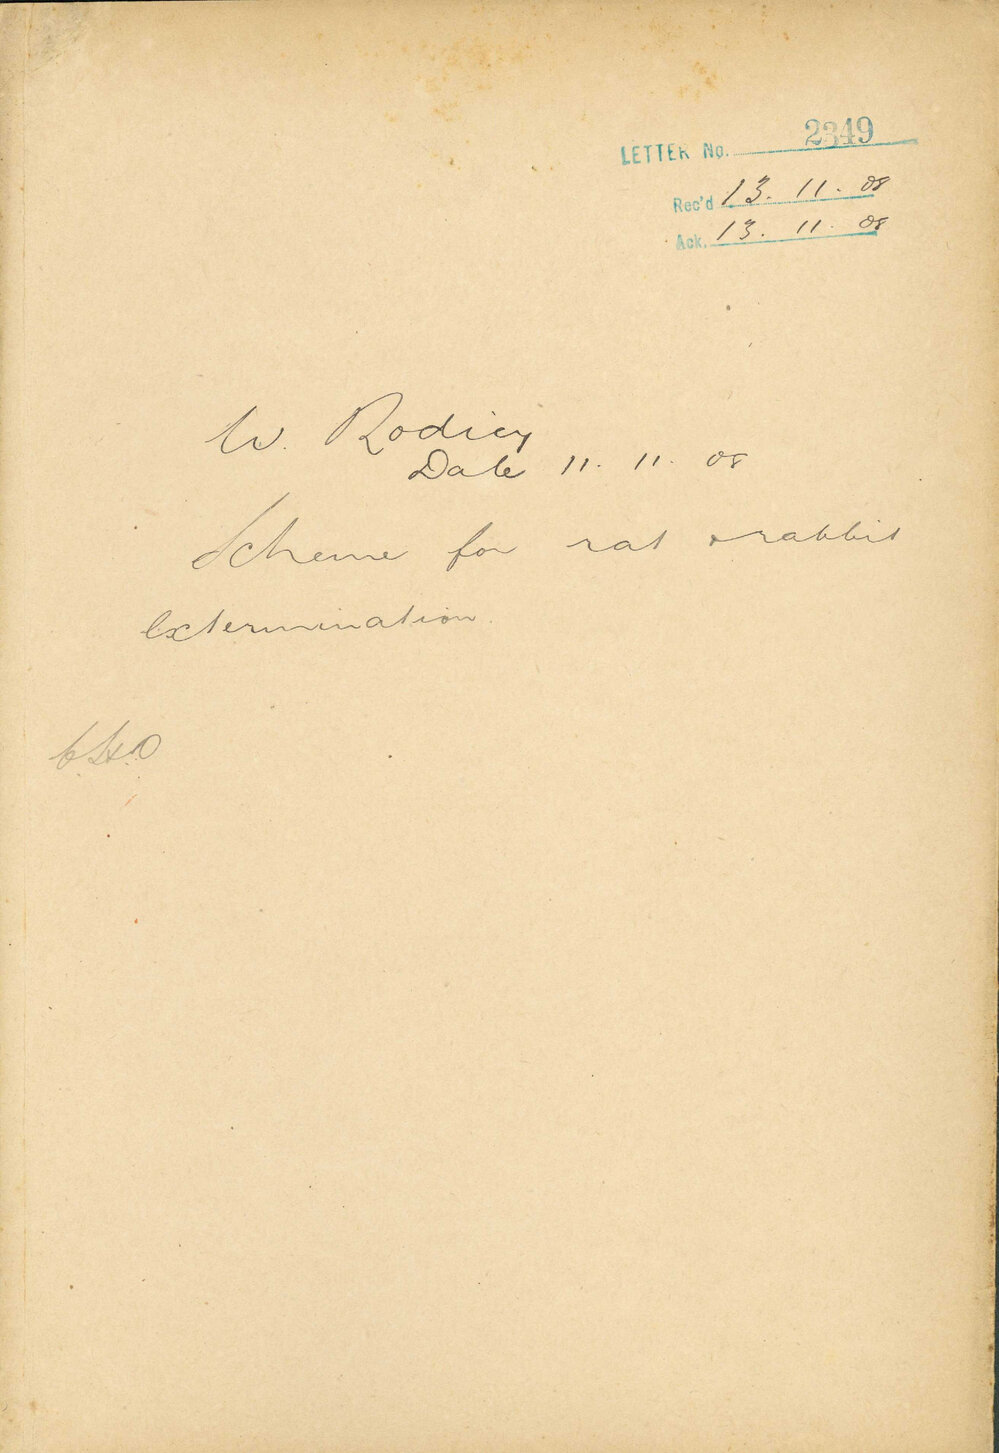 LETTER No. 2349
Rec'd 13. 11. 08
Ack. 13. 11. 08
W. Rodicy
Date 11. 11. 08
Scheme for rat & rabbit
extermination.